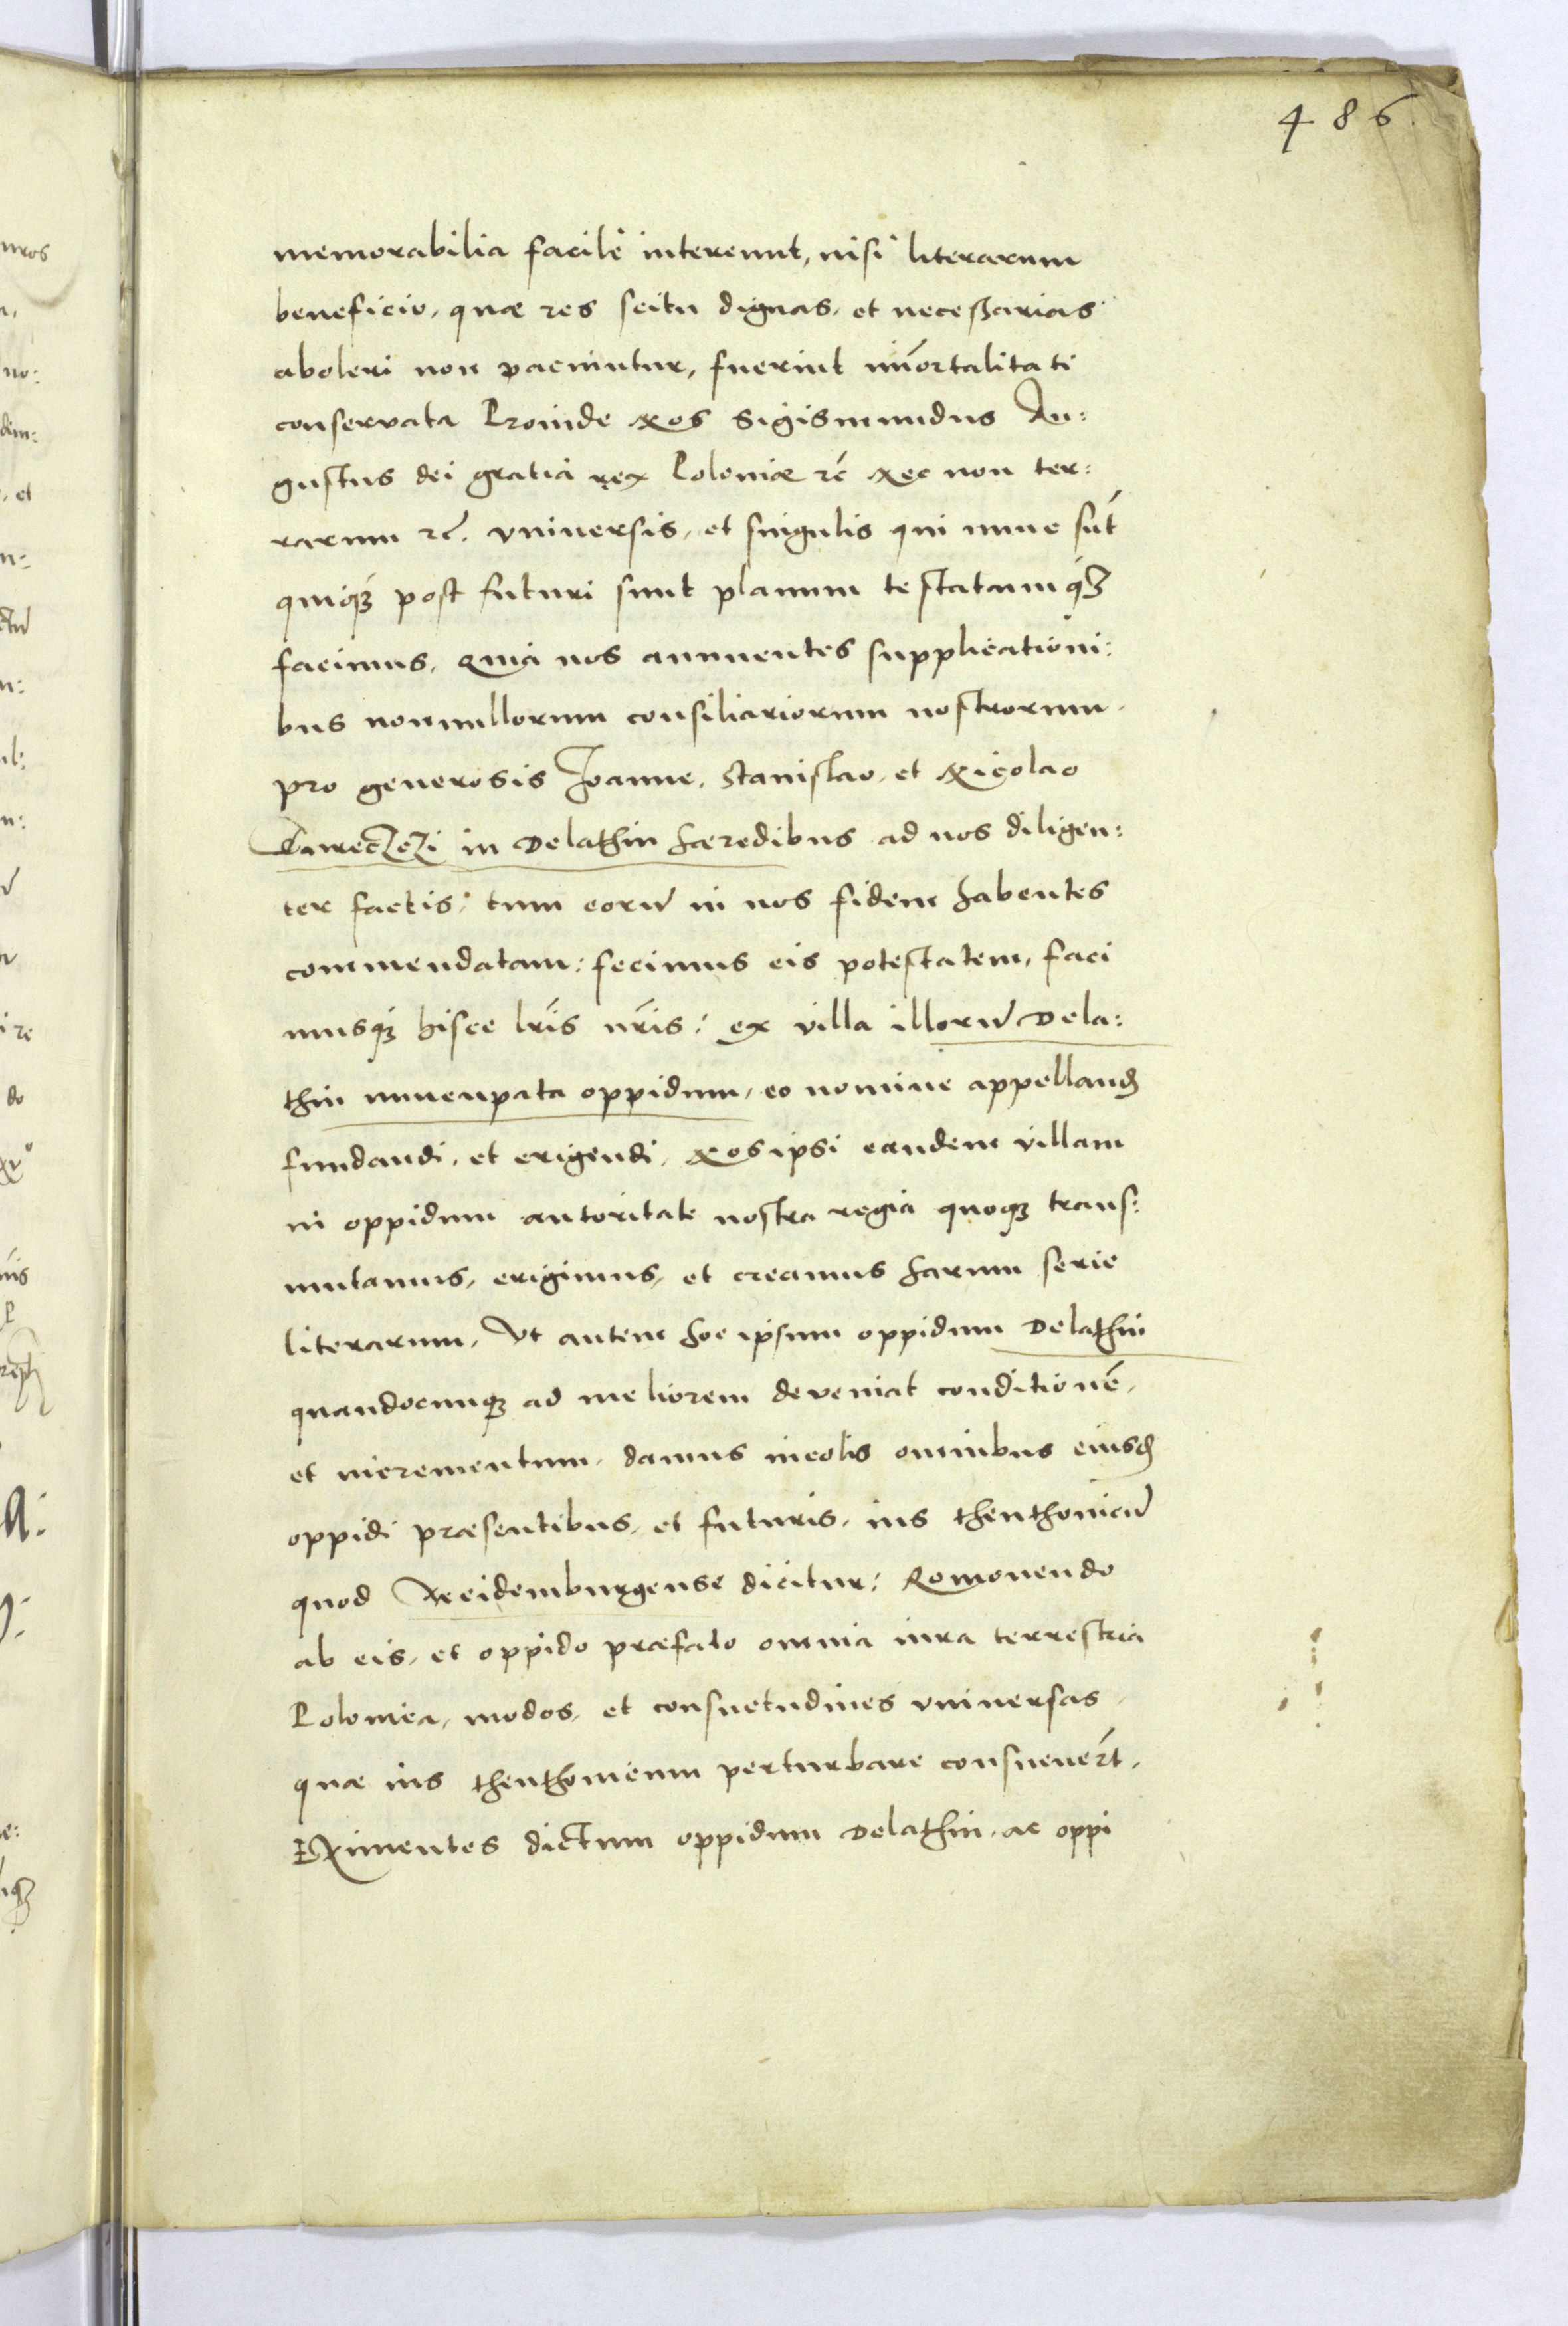 486.
memorabilia facile intereunt, nisi literarum
beneficio, quae res scitu dignas, et necessarias
aboleri non paciuntur, fuerint im̄ortalitati
conservata Proinde Nos Sigismundus Au:
gustus dei gratia rex Poloniae rc̄ Nec non ter:
rarum rc̄. universis, et singulis qui nunc sūt
quiqꝫ post futuri sunt planum testatumqꝫ
facimus, Quia nos annuentes supplicationi:
bus nonnullorum consiliariorum nostrorum,
pro generosis Joanne, Stanislao, et Nicolao
in Delathin haeredibus ad nos diligen:
ter factis: tum eorū in nos fidem habentes
commendatam: fecimus eis potestatem, faci
musqꝫ hisce lr̄is nr̄is: ex villa illorū Dela:
thin nuncupata oppidum, eo nomine appelland
fundandi, et erigendi, Nos ipsi eandem villam
in oppidum autoritate nostra regia quoqꝫ trans:
mutamus, erigimus, et creamus harum serie
literarum, Ut autem hoc ipsum oppidum Delathin
quandocunqꝫ ad meliorem deveniat conditionē,
et incrementum, damus incolis omnibus eiusd
oppidi praesentibus, et futuris, ius thenthonicū
quod Meidemburgense dicitur: Romovendo
ab eis, et oppido praefato omnia iura terrestria
Polonica, modos, et consuetudines universas,
quae ius thenthonicum perturbare consuever̄t,
Eximentes dictum oppidum Delathin, ac oppi